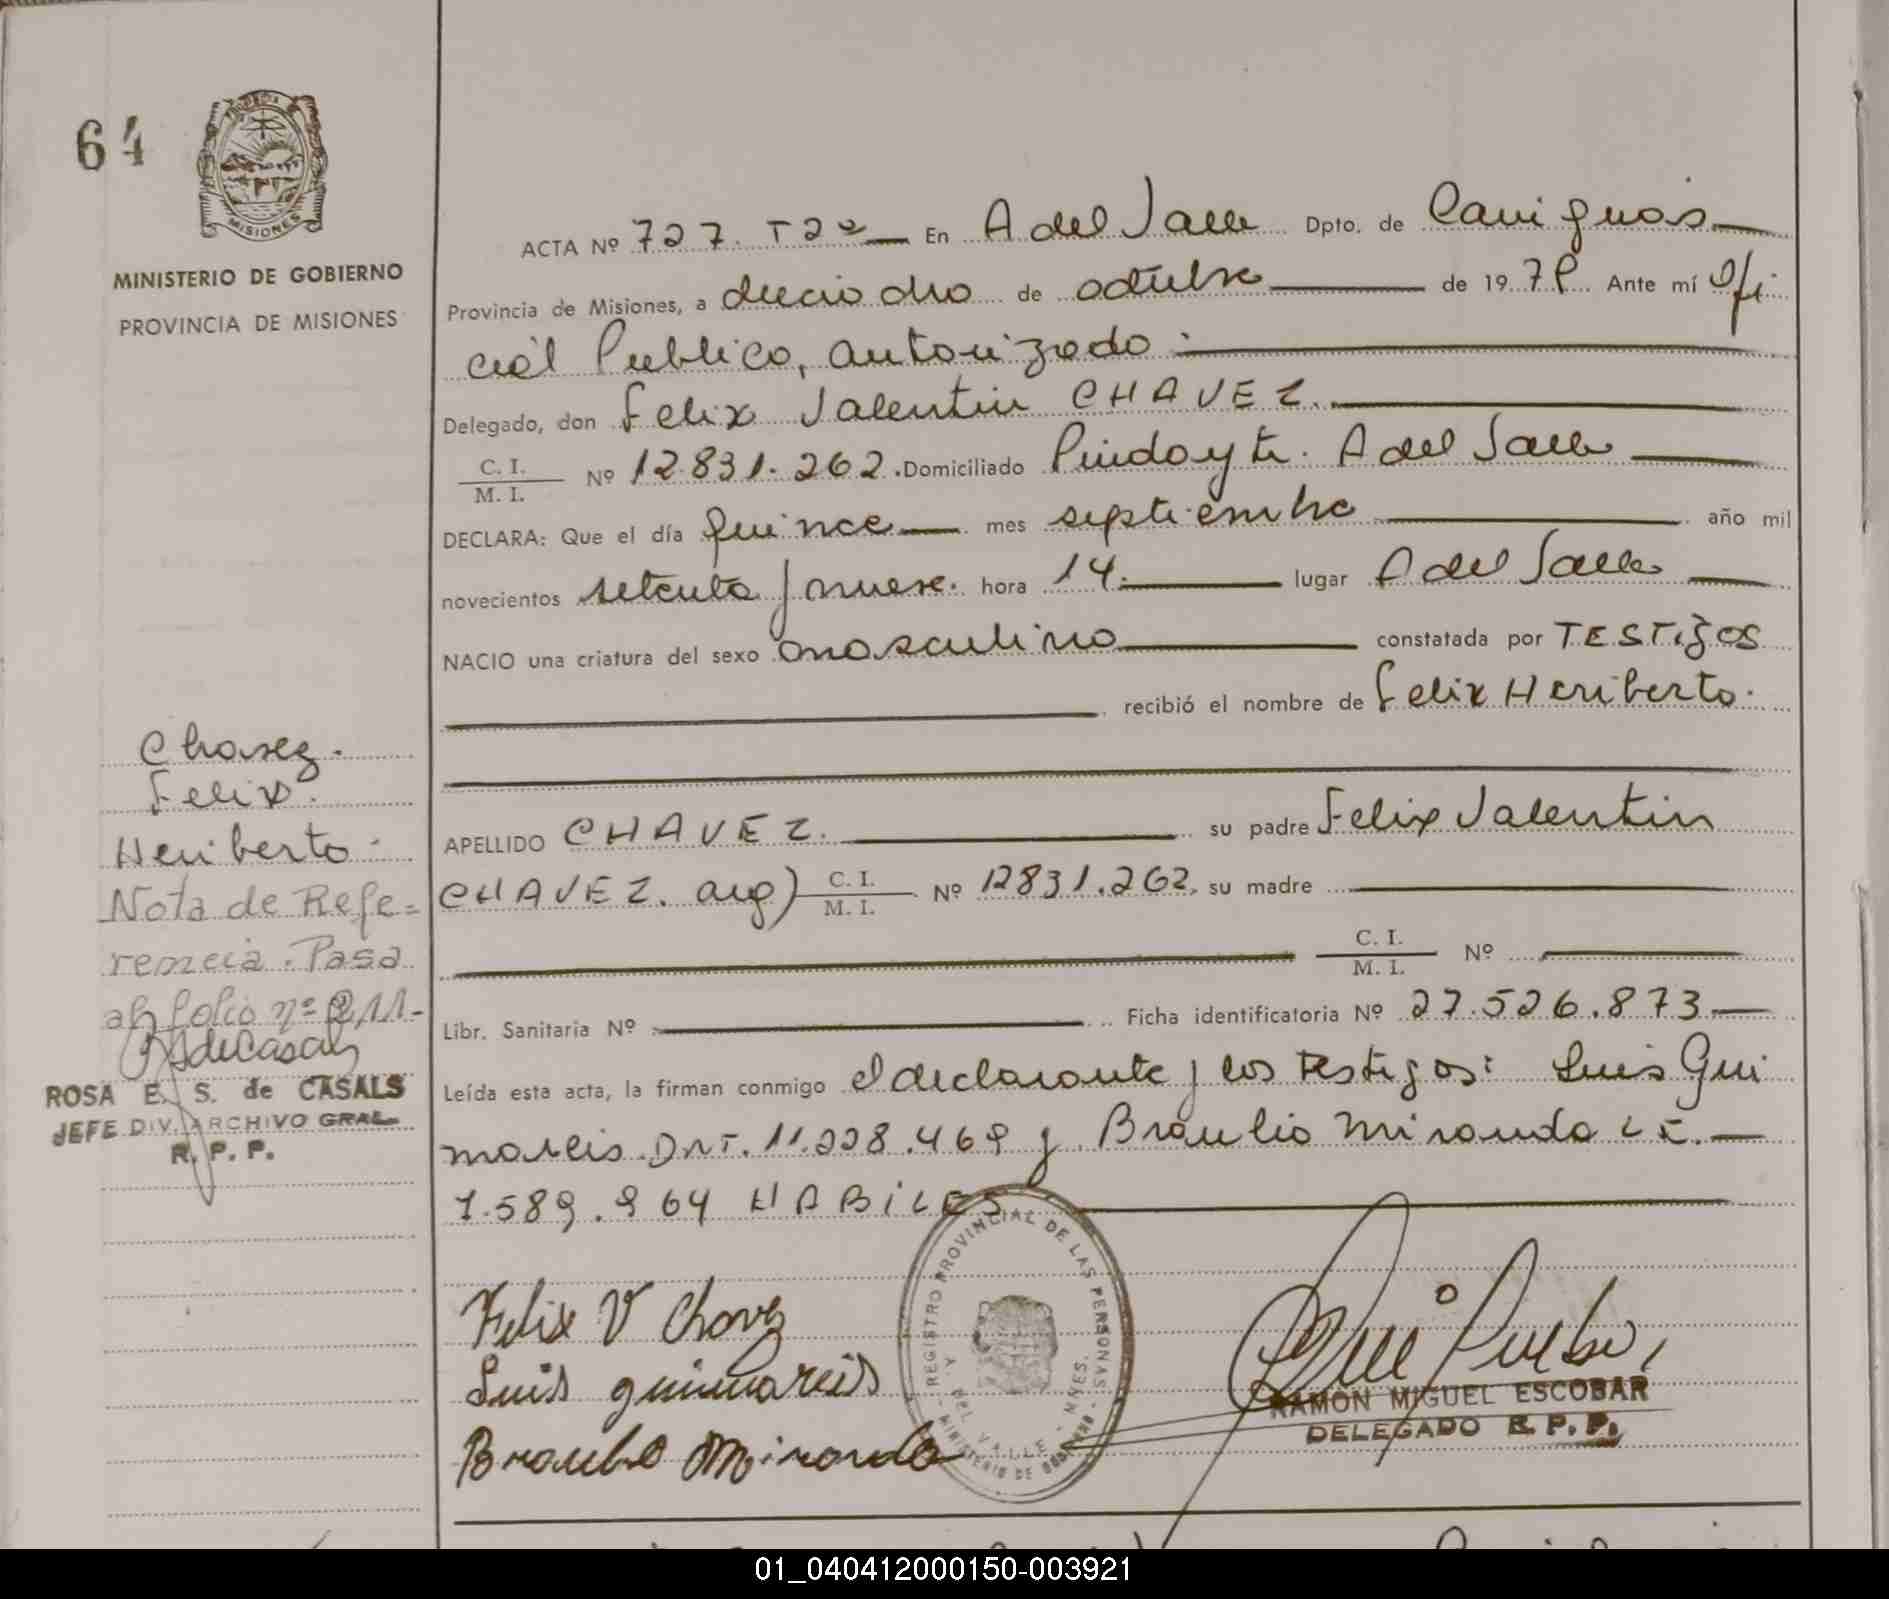 64
PROVINCIA DE
MISIONES
MINISTERIO DE GOBIERNO
PROVINCIA DE MISIONES
ACTA Nº 727. T2º En A del Valle Dpto. de Cainguas
Provincia de Misiones, a dieciocho de octubre de 1979. Ante mí Ofi
cial Publico, autorizado
Delegado, don Felix Valentin CHAVEZ.
C. I.
M. I. Nº 12.831.262. Domiciliado Pindayti. A del Valle
DECLARA: Que el día quince mes septiembre año mil
novecientos setenta y nueve. hora 14. lugar A del Valle
NACIO una criatura del sexo masculino constatada por TESTigos
recibió el nombre de Felix Heriberto.
APELLIDO CHAVEZ. su padre Felix Valentin
CHAVEZ. arg) C. I.
M. I. Nº 12831.262, su madre
C. I.
M. I. Nº
Libr. Sanitaria Nº Ficha identificatoria Nº 27.526.873
Leída esta acta, la firman conmigo el declarante y los testigos: Luis Gui
mareis. DNI. 11.228.469 y Braulio Miranda L E.
7.589.964 HABiLES
Chavez.
Felix.
Heriberto.
Nota de Refe=
rencia. Pasa
al folio nº 211.-
RSdeCasals
ROSA E. S. de CASALS
JEFE DIV. ARCHIVO GRAL.
R. P. P.
Felix V Chavez
Luis guimareis
Braulio Miranda
REGISTRO PROVINCIAL DE LAS PERSONAS
A. DEL VALLE - MNES.
- MINISTERIO DE GOBIERNO -
RAMON MIGUEL ESCOBAR
DELEGADO R. P. P.
01_040412000150-003921